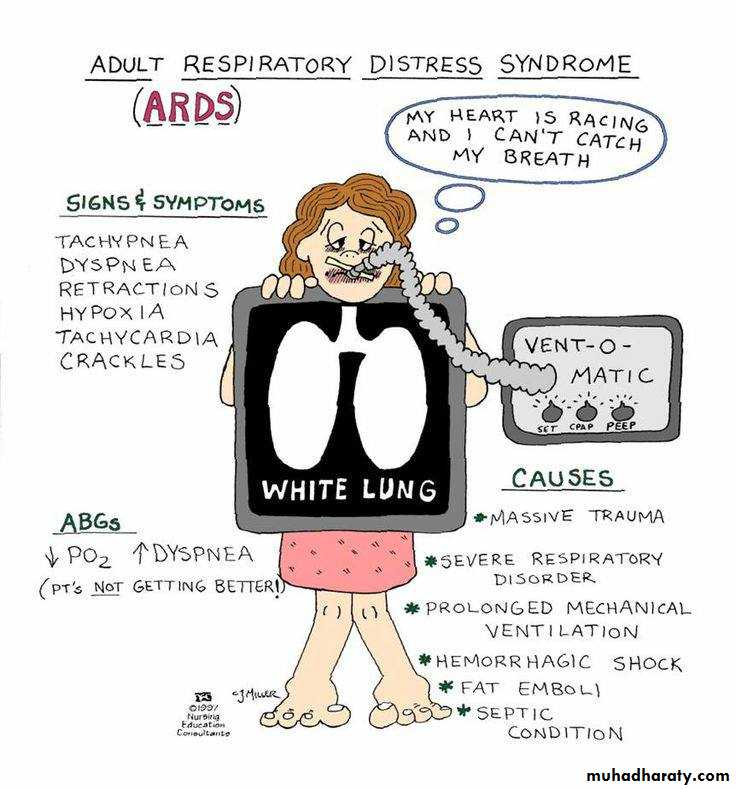 ADULT RESPIRATORY DISTRESS SYNDROME
(ARDS)
MY HEART IS RACING
AND I CAN'T CATCH
MY BREATH
SIGNS & SYMPTOMS
TACHYPNEA
DYSPNEA
RETRACTIONS
HYPOXIA
TACHYCARDIA
CRACKLES
VENT-O-
MATIC
SET CPAP PEEP
WHITE LUNG
ABGs
↓ PO₂ ↑ DYSPNEA
(PT's NOT GETTING BETTER!)
CAUSES
* MASSIVE TRAUMA
* SEVERE RESPIRATORY
DISORDER
* PROLONGED MECHANICAL
VENTILATION
* HEMORRHAGIC SHOCK
* FAT EMBOLI
* SEPTIC
CONDITION
CJMILLER
©1997
Nursing
Education
Consultants
muhadharaty.com